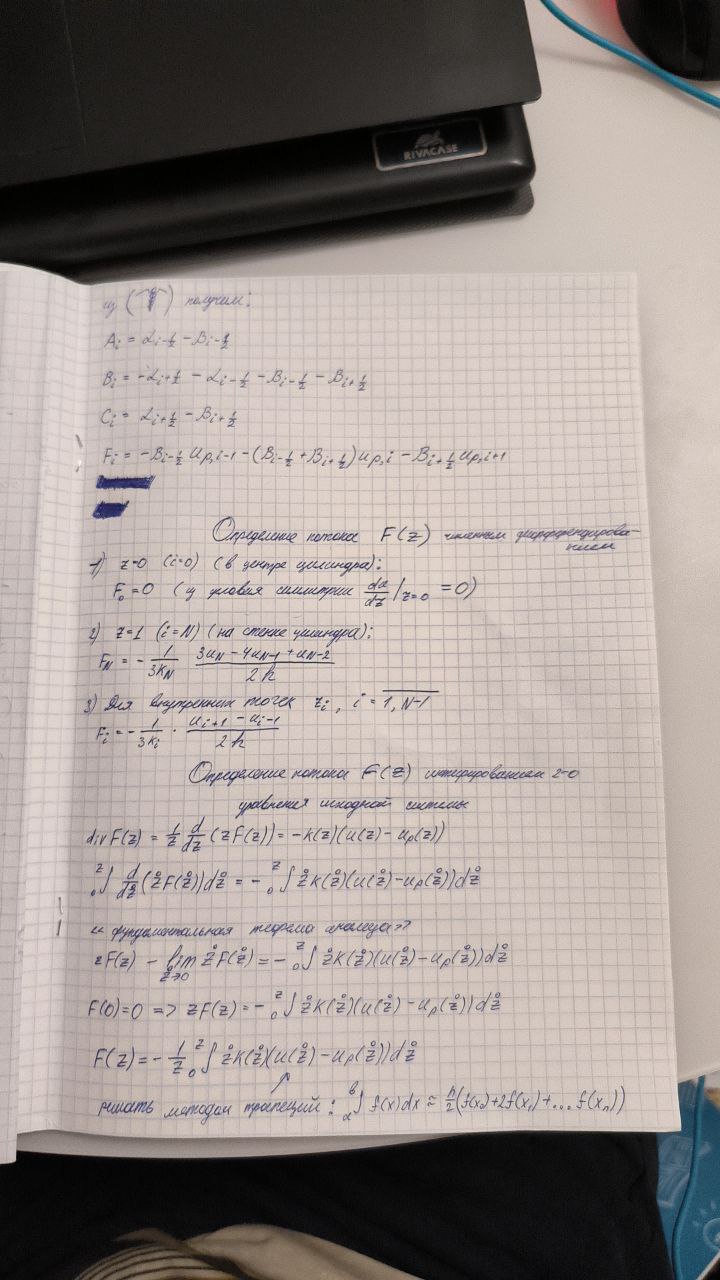 RIVACASE
из ( ) получим:
A_i = α_{i-1/2} - B_{i-1/2}
B_i = -α_{i+1/2} - α_{i-1/2} - B_{i-1/2} - B_{i+1/2}
C_i = α_{i+1/2} - B_{i+1/2}
F_i = -B_{i-1/2} u_{p,i-1} - (B_{i-1/2} + B_{i+1/2}) u_{p,i} - B_{i+1/2} u_{p,i+1}
Определение потока F(z) численным дифференцирова-
нием
1) z=0 (i=0) (в центре цилиндра):
F_0 = 0 (из условия симметрии du/dz |_{z=0} = 0)
2) z=1 (i=N) (на стенке цилиндра):
F_N = - 1/(3k_N) (3u_N - 4u_{N-1} + u_{N-2})/(2h)
3) Для внутренних точек z_i, i = \overline{1, N-1}
F_i = - 1/(3k_i) · (u_{i+1} - u_{i-1})/(2h)
Определение потока F(z) интегрированием 2-о
уравнения исходной системы
div F(z) = 1/z d/dz (zF(z)) = -k(z)(u(z) - u_p(z))
_0^z∫ d/dz̊ (z̊F(z̊))dz̊ = - _0^z∫ z̊k(z̊)(u(z̊) - u_p(z̊))dz̊
"фундаментальная теорема анализа"
zF(z) - lim_{z̊→0} z̊F(z̊) = - _0^z∫ z̊k(z̊)(u(z̊) - u_p(z̊))dz̊
F(0)=0 => zF(z) = - _0^z∫ z̊k(z̊)(u(z̊) - u_p(z̊))dz̊
F(z) = - 1/z _0^z∫ z̊k(z̊)(u(z̊) - u_p(z̊))dz̊
решать методом трапеций: _a^b∫ f(x)dx ≈ h/2 (f(x_0)+2f(x_1)+...f(x_n))